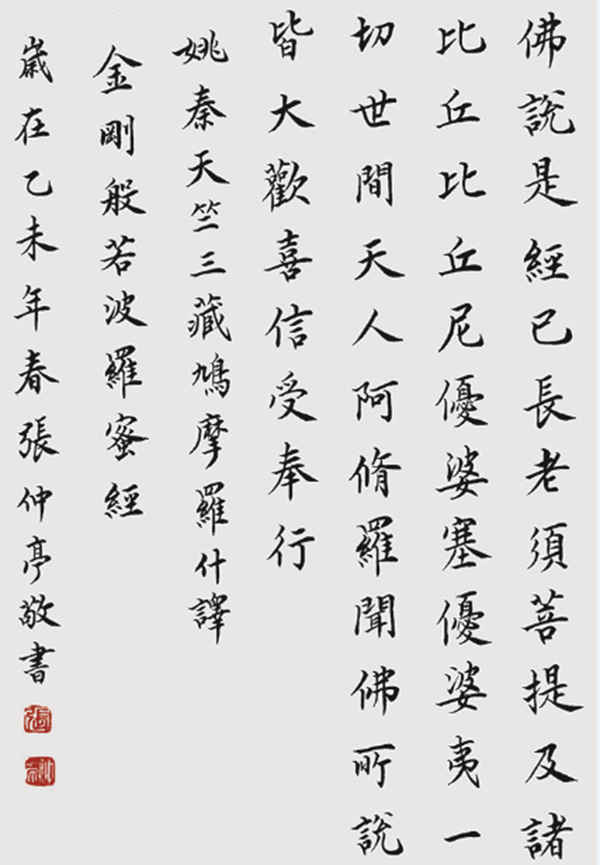 佛說是經已長老須菩提及諸
比丘比丘尼優婆塞優婆夷一
切世間天人阿脩羅聞佛所說
皆大歡喜信受奉行
姚秦天竺三藏鳩摩羅什譯
金剛般若波羅蜜經
歲在乙未年春張仲亭敬書